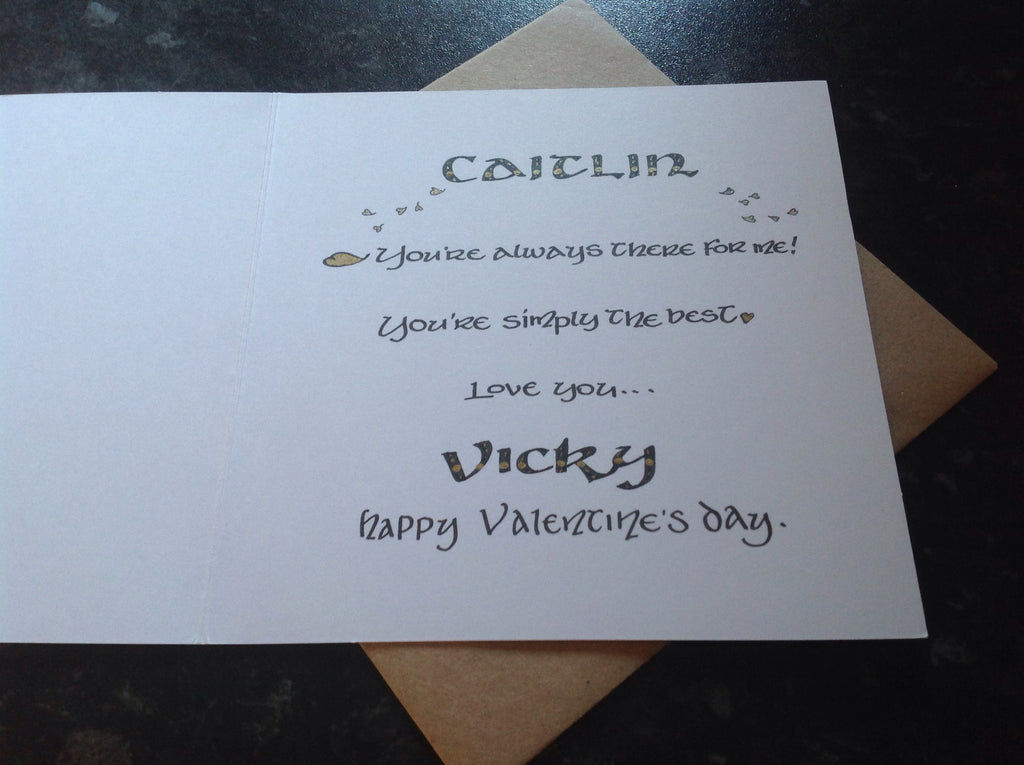 Caitlin
You're always there for me!
You're simply the best
Love you...
Vicky
Happy Valentine's day.